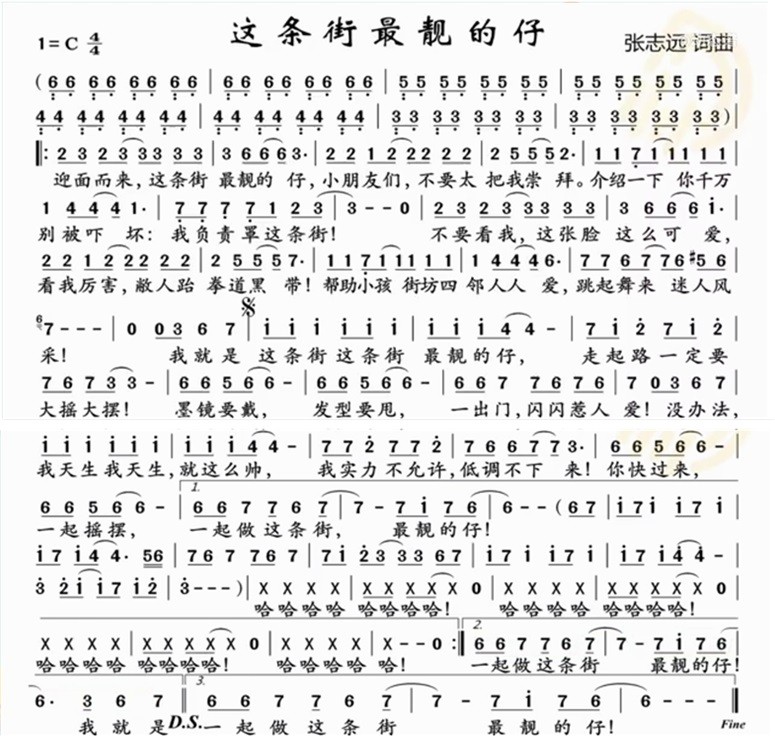 这条街最靓的仔
1=C 4/4
张志远 词曲
( 66 66 66 66 | 66 66 66 66 | 55 55 55 55 | 55 55 55 55 |
44 44 44 44 | 44 44 44 44 | 33 33 33 33 | 33 33 33 33 )
‖: 2 3 2 3 3 3 3 3 | 3 6 6 6 3· | 2 2 1 2 2 2 2 2 | 2 5 5 5 2· | 1 1 7 1 1 1 1 1 |
迎面而来，这条街 最靓的 仔，小朋友们，不要太 把我崇 拜。介绍一下 你千万
1 4 4 4 1· | 7 7 7 7 1 2 3 | 3 - - 0 | 2 3 2 3 3 3 3 3 | 3 6 6 6 i· |
别被吓 坏：我负责罩这条街！ 不要看我，这张脸 这么可 爱，
2 2 1 2 1 2 2 2 2 | 2 5 5 5 7· | 1 1 7 1 1 1 1 1 | 1 4 4 4 6· | 7 7 6 7 7 #5 6 |
看我厉害，敝人跆 拳道黑 带！帮助小孩 街坊四 邻人人 爱，跳起舞来 迷人风
7 - - - | 0 0 3 6 7 | i i i i i i | i i i 4 4 - | 7 i 2 7 i 2 |
采！ 我就是 这条街这条街 最靓的仔， 走起路一定要
7 6 7 3 3 - | 6 6 5 6 6 - | 6 6 5 6 6 - | 6 6 7 7 6 7 6 | 7 0 3 6 7 |
大摇大摆！ 墨镜要戴， 发型要甩， 一出门，闪闪惹人 爱！没办法，
i i i i i i | i i i 4 4 - | 7 7 2 7 7 2 | 7 6 6 7 7 3· | 6 6 5 6 6 - |
我天生我天生，就这么帅， 我实力不允许，低调不下 来！你快过来，
1.
6 6 5 6 6 - | 6 6 7 7 6 7 | 7 - 7 i 7 6 | 6 - - ( 6 7 | i 7 i i 7 i |
一起摇摆， 一起做这条街， 最靓的仔！
i 7 i 4 4· 5 6 | 7 6 7 7 6 7 | 7 i 2 3 3 3 6 7 | i 7 i i 7 i | i 7 i 4 4 - |
3 2 i i 7 i 2 | 3 - - - ) | X X X X | X X X X X 0 | X X X X | X X X X X 0 |
哈哈哈哈 哈哈哈哈！ 哈哈哈哈 哈哈哈哈！
2.
X X X X | X X X X X 0 | X X X X | X - - 0 :‖ 6 6 7 7 6 7 | 7 - 7 i 7 6 |
哈哈哈哈 哈哈哈哈！ 哈哈哈哈 哈！ 一起做这条街 最靓的仔！
3.
6· 3 6 7 ‖ 6 6 7 7 6 7 | 7 - 7 i 7 6 | 6 - - - ‖
我就是 D.S. 一起做这条街 最靓的仔！ Fine